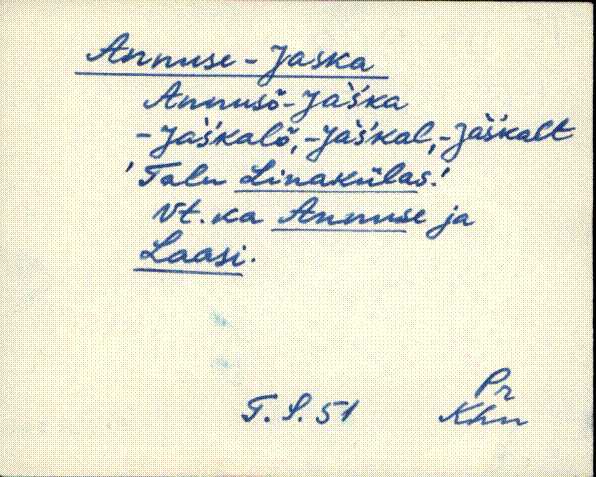 Annuse-Jaska
Annusõ-Jàśka
-Jàśkalõ, -Jàśkal, -Jàśkalt
'Talu Linakülas.'
Vt. ka Annuse ja
Laasi.
Pr
T. S. 51 Khn